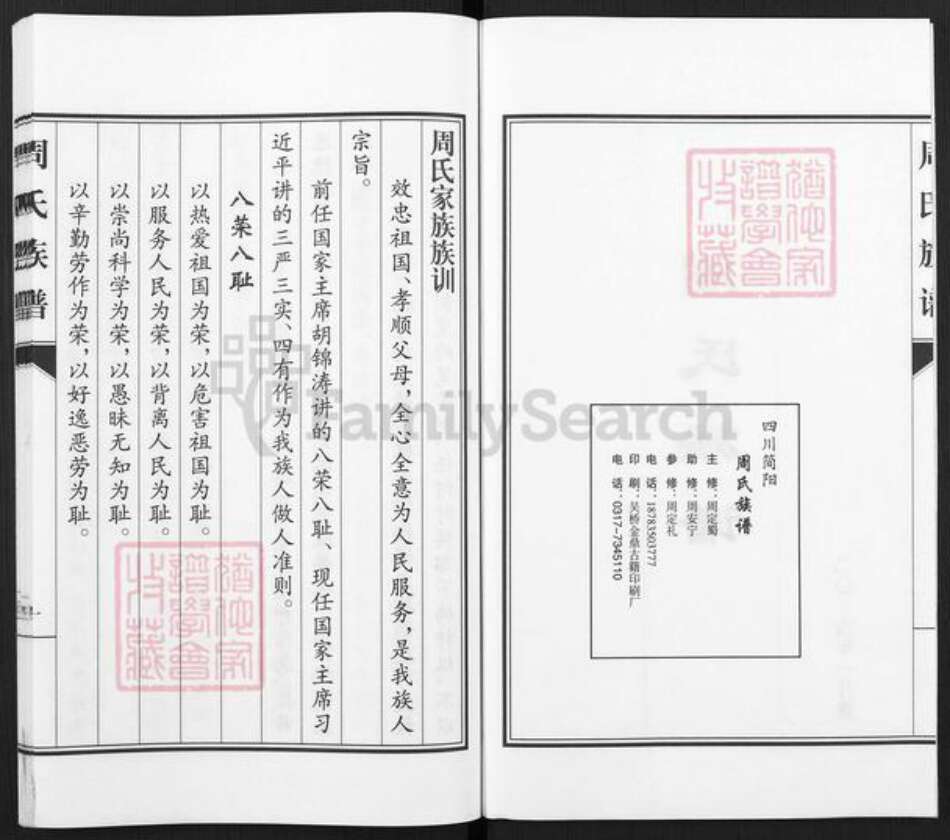 四川简阳
周氏族谱
主修：周定蜀
助修：周安宁
参修：周定礼
电话：18783503777
印刷：吴桥金鼎古籍印刷厂
电话：0317-7345110
周氏家族族训
效忠祖国、孝顺父母，全心全意为人民服务，是我族人
宗旨。
前任国家主席胡锦涛讲的八荣八耻、现任国家主席习
近平讲的三严三实、四有作为我族人做人准则。
八荣八耻
以热爱祖国为荣，以危害祖国为耻。
以服务人民为荣，以背离人民为耻。
以崇尚科学为荣，以愚昧无知为耻。
以辛勤劳作为荣，以好逸恶劳为耻。
周氏族谱
FamilySearch